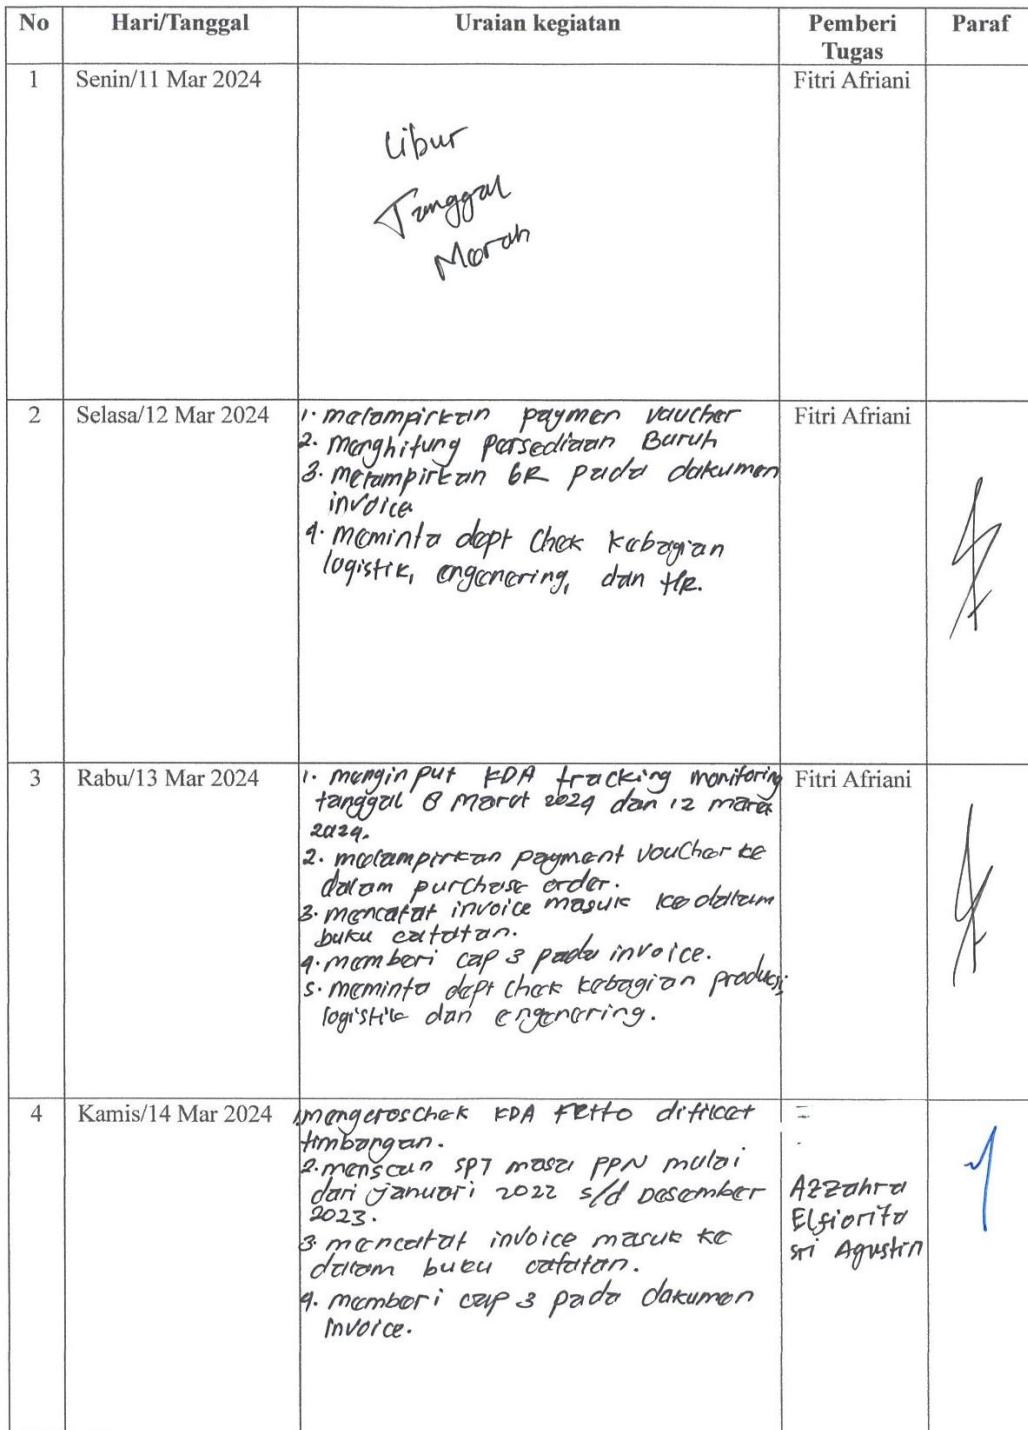 No Hari/Tanggal Uraian kegiatan Pemberi Tugas Paraf
1 Senin/11 Mar 2024 Fitri Afriani
Libur
Tanggal
Merah
2 Selasa/12 Mar 2024 Fitri Afriani
1. melampirkan paymen vaucher
2. menghitung persediaan Buruh
3. melampirkan GR pada dakumen
invoice
4. meminta dept chek kebagian
logistik, engenering, dan HR.
3 Rabu/13 Mar 2024 Fitri Afriani
1. menginput KDA tracking monitoring
tanggal 8 maret 2024 dan 12 maret
2024.
2. melampirkan payment voucher ke
dalam purchase order.
3. mencatat invoice masuk ke dalam
buku catatan.
4. memberi cap 3 pada invoice.
5. meminta dept chek kebagian produksi,
logistik dan engenering.
4 Kamis/14 Mar 2024
1. mengeroschek KDA tiket
timbangan.
2. menscan SPT masa PPN mulai
dari januari 2022 s/d Desember
2023.
3. mencatat invoice masuk ke
dalam buku catatan.
4. memberi cap 3 pada dakumen
invoice.
Azzahra
Elfiorita
sri Agustin